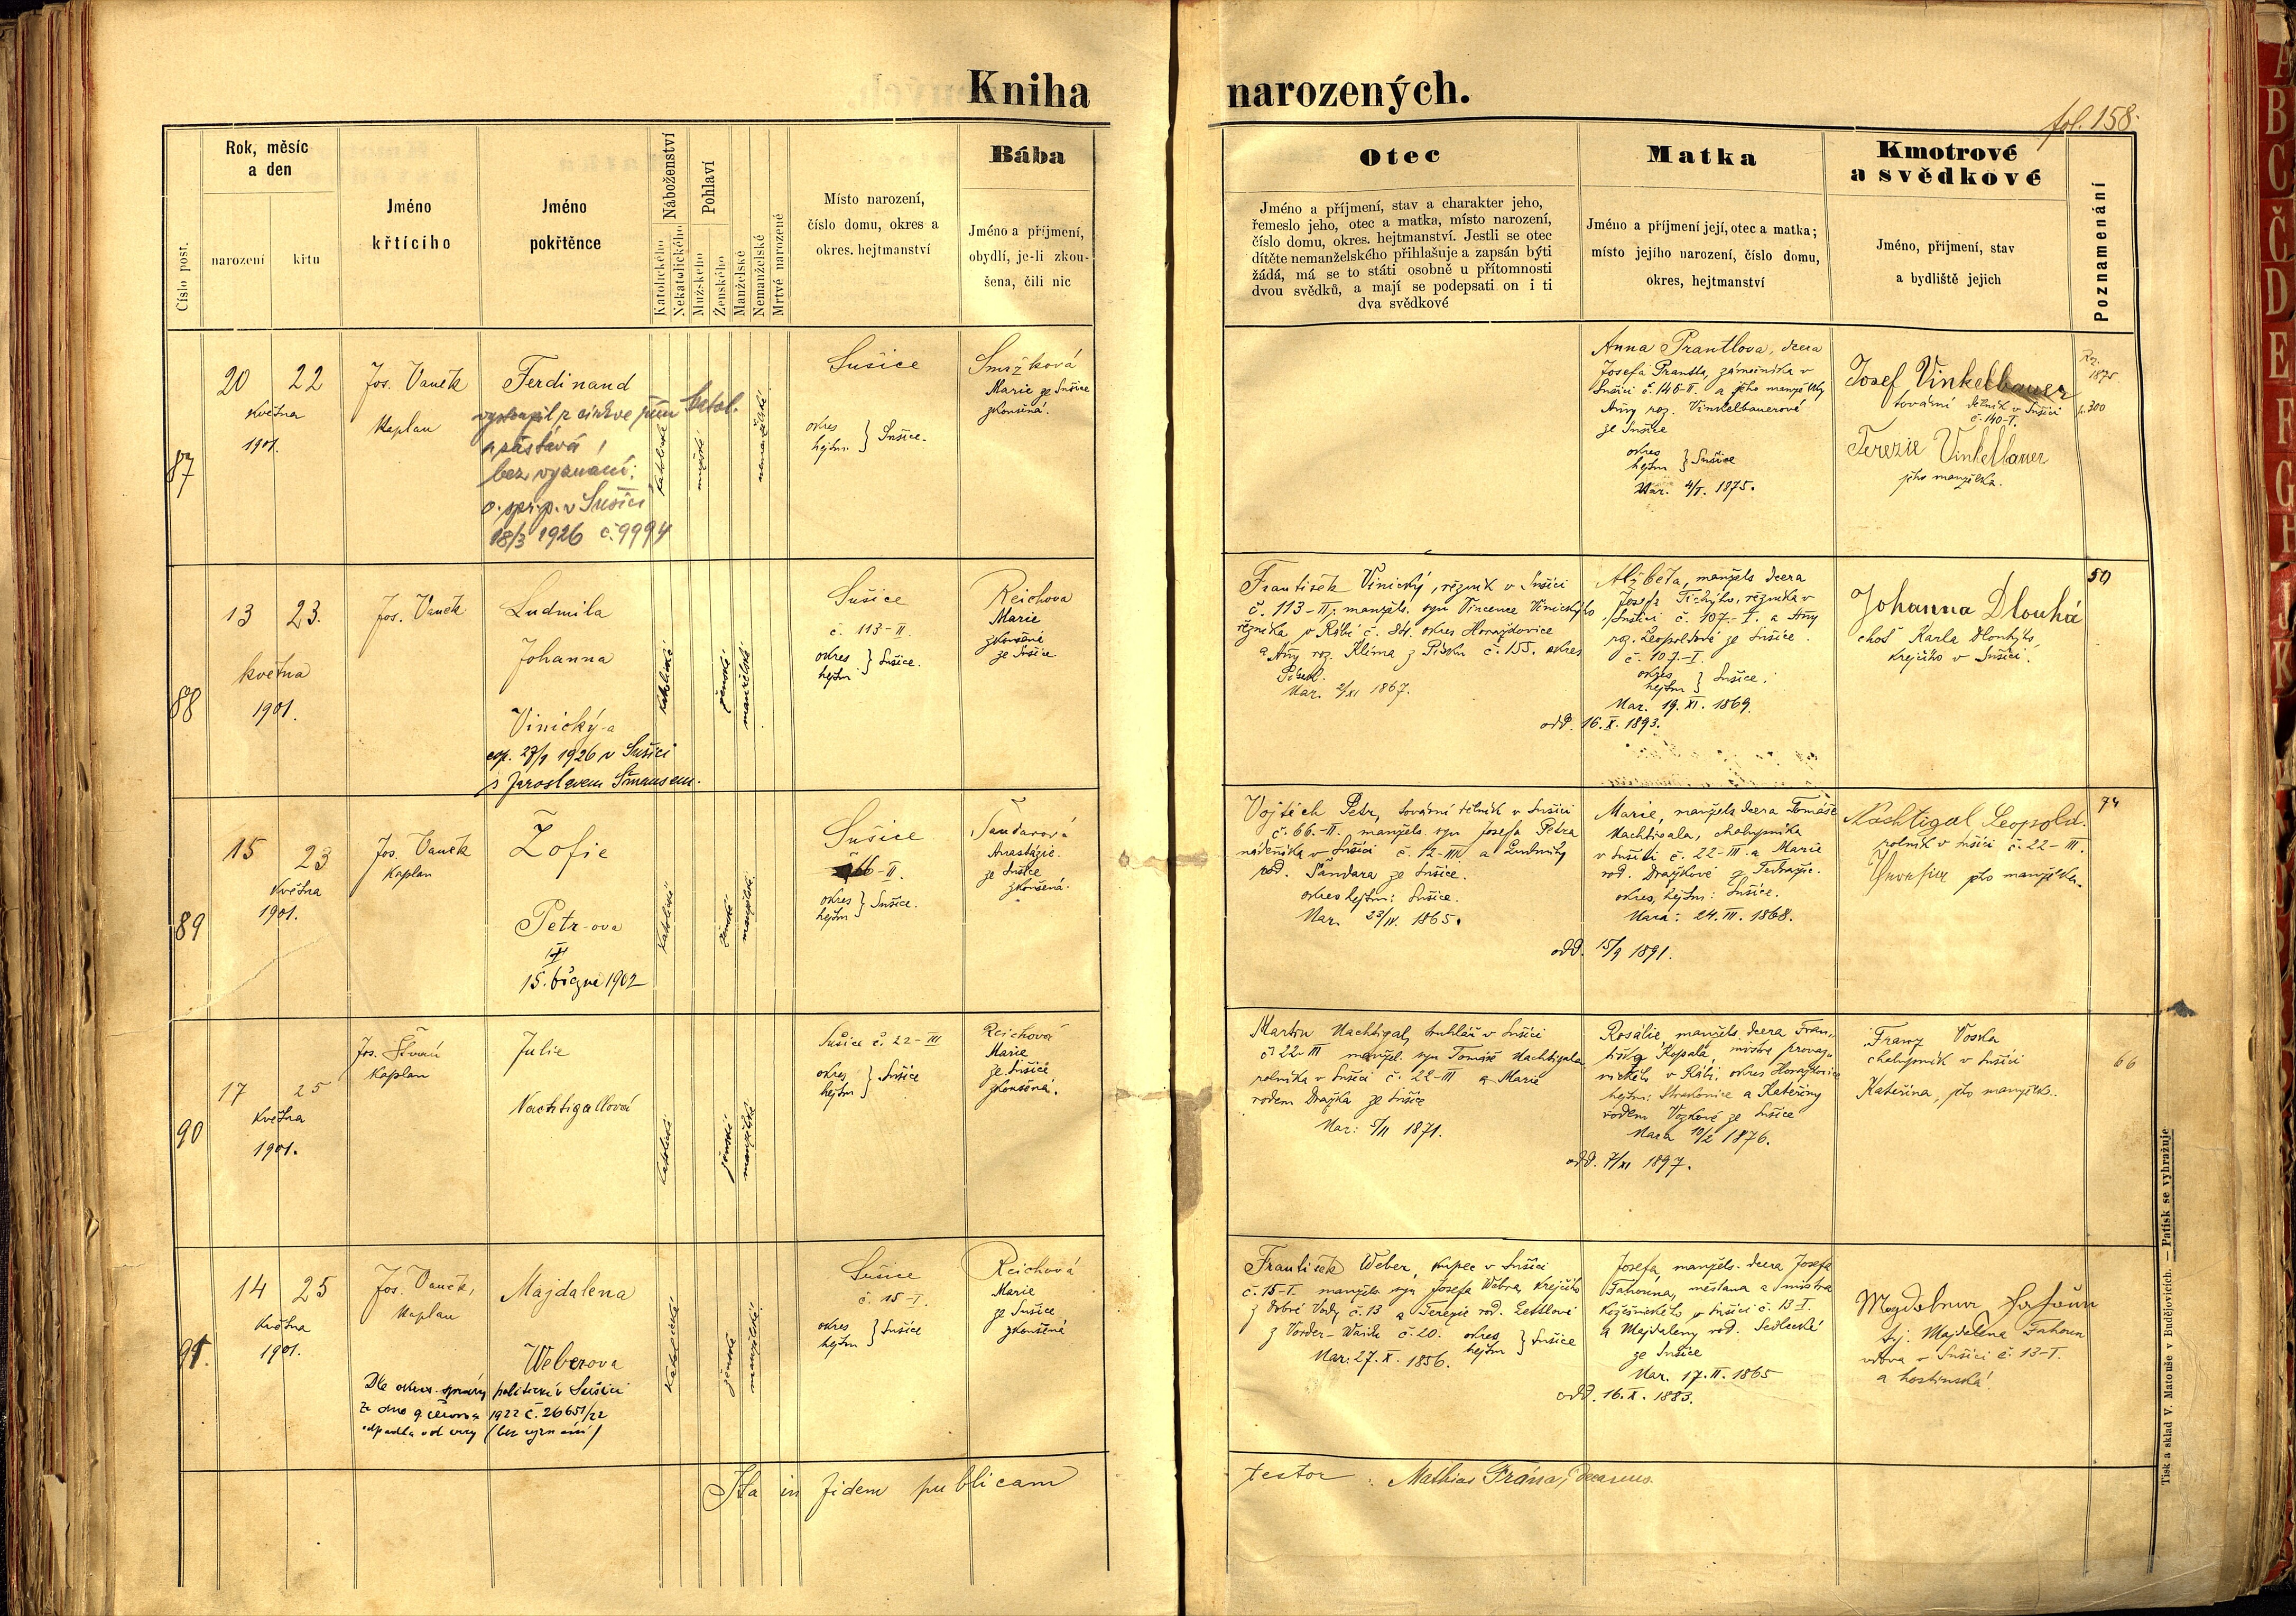 Kniha narozených.
fol. 158.
Číslo post.
Rok, měsíc
a den
narození
křtu
Jméno
křtícího
Jméno
pokřtěnce
Náboženství
Katolického
Nekatolického
Pohlaví
Mužského
Ženského
Manželské
Nemanželské
Mrtvě narozené
Místo narození,
číslo domu, okres a
okres. hejtmanství
Bába
Jméno a příjmení,
obydlí, je-li zkou-
šena, čili nic
Otec
Jméno a příjmení, stav a charakter jeho,
řemeslo jeho, otec a matka, místo narození,
číslo domu, okres. hejtmanství. Jestli se otec
dítěte nemanželského přihlašuje a zapsán býti
žádá, má se to státi osobně u přítomnosti
dvou svědků, a mají se podepsati on i ti
dva svědkové
Matka
Jméno a příjmení její, otec a matka;
místo jejího narození, číslo domu,
okres, hejtmanství
Kmotrové
a svědkové
Jméno, přijmení, stav
a bydliště jejich
Poznamenání
87
20 22
května
1901.
Jos. Vaněk
Kaplan
Ferdinand
vystoupil z církve řím katol.
a zůstává
bez vyznání:
o. spr. p. v Sušici
18/3 1926 č. 9994
katolické
mužské
nemanželské
Sušice
okres
hejtm. } Sušice.
Smržková
Marie ze Sušice
zkoušená.
Anna Prantlova, dcera
Josefa Prantla, zámečníka v
Sušici č. 146-II a jeho manželky
Anny roz. Vinkelbauerové
ze Sušice
okres
hejtm } Sušice
Nar. 4/I. 1875.
Josef Vinkelbauer
tovární dělník v Sušici
č. 140-I.
Terezie Vinkelbauer
jeho manželka.
Roz.
1875
p. 300
88
13 23.
května
1901.
Jos. Vaněk
Ludmila
Johanna
Vinický-a
cop. 27/9 1926 v Sušici
s Jaroslavem Šimansem.
katolické
ženské
manželské
Sušice
č. 113-II.
okres
hejtm } Sušice.
Reichova
Marie
zkoušená
ze Sušice.
František Vinický, řezník v Sušici
č. 113-II; manžels. syn Vincence Vinického
řezníka v Rábí č. 84. okres Horažďovice
a Anny roz. Klíma z Písku č. 155. okres
Písek.
Nar. 2/XI 1867.
Alžběta, manžels dcera
Josefa Tichýho, řezníka v
Sušici č. 107-I. a Anny
roz. Leopoldové ze Sušice.
č. 107-I.
okres
hejtm } Sušice.
Nar. 19. XI. 1869.
odd. 16. X. 1893.
Johanna Dlouhá
choť Karla Dlouhýho,
krejčího v Sušici.
50
89
15 23
Května
1901.
Jos. Vaněk
Kaplan
Žofie
Petr-ova
15. března 1902
katolické
ženské
manželské
Sušice
66-II.
okres
hejtm } Sušice.
Šandarová
Anastázie.
ze Sušice
zkoušená.
Vojtěch Petr, tovární dělník v Sušici
č. 66.-II. manžels. syn Josefa Petra
nádeníka v Sušici č. 12-III a Ludmily
rod. Šandara ze Sušice.
okres hejtm: Sušice.
Nar. 23/IV. 1865.
Marie, manžels dcera Tomáše
Nachtigala, chalupníka
v Sušici č. 22-III. a Marie
rod. Dražkové z Tedražic.
okres, hejtm: Sušice.
Nara: 24. III. 1868.
odd. 15/9 1891.
Nachtigal Leopold.
rolník v Sušici č. 22-III.
jeho manželka.
74
90
17 25
Května
1901.
Jos. Štván
Kaplan
Julie
Nachtigallová
katolické
ženské
manželské
Sušice č. 22-III
okres
hejtm } Sušice
Reichová
Marie
ze Sušice
zkoušená.
Martin Nachtigal, truhlář v Sušici
č. 22-III manžel. syn Tomáše Nachtigala
rolníka v Sušici č. 22-III a Marie
rodem Dražka ze Sušice
Nar: 5/II 1871.
Rosálie, manžels. dcera Fran-
tiška Kopala, mistra provaz-
nického v Rábí, okres Horažďovice
hejtm: Strakonice a Kateřiny
rodem Vozkové ze Sušice
Nara 10/2 1876.
odd. 7/XI 1897.
Franz Voska
chalupník v Sušici
Kateřina, jeho manželka.
66
91.
14 25
Května
1901.
Jos. Vaněk,
Kaplan
Majdalena
Weberova
Dle okres. správy politické v Sušici
ze dne 9. června 1922 č. 26651/22
odpadla od víry (bez vyznání)
katolické
ženské
manželské
Sušice
č. 15-I.
okres
hejtm } Sušice
Reichová
Marie
ze Sušice
zkoušená
František Weber, kupec v Sušici
č. 15-I. manžels. syn Josefa Webra, krejčího
z Dobré Vody č. 13 a Terezie rod. Zettlové
z Vorder- č. 20. okres
hejtm } Sušice
Nar: 27. X. 1856.
Josefa, manžels. dcera Josefa
Fahouna, měšťana a mistra
kožešnického v Sušici č. 13-I.
a Majdaleny rod. Sedlecké
ze Sušice
Nar. 17. II. 1865
odd. 16. X. 1883.
Magdalena Fahoun
tj. Majdalena Fahoun
vdova v Sušici č. 13-I.
a hostinská
Ita in fidem publicam testor: Mathias Frána, decanus.
Tisk a sklad V. Matouše v Budějovicích. — Patisk se vyhražuje
A
B
C
Č
D
E
F
G
H
J
K